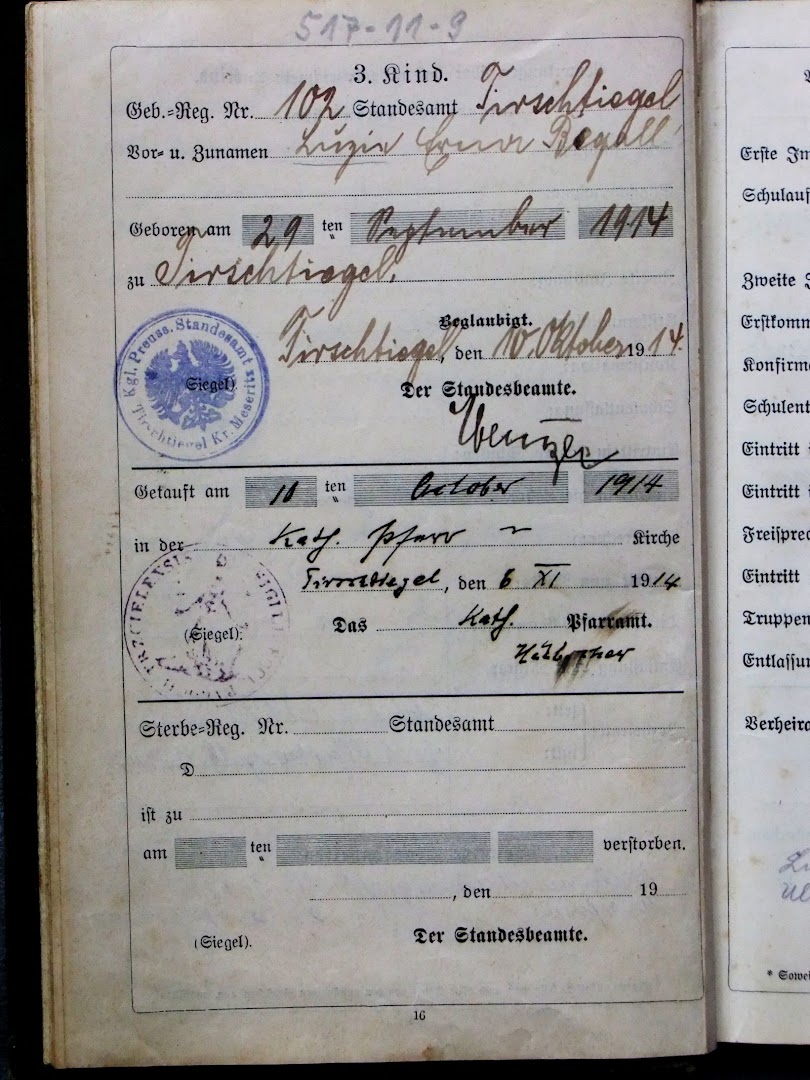 517-11-9
3. Kind.
Geb.=Reg. Nr. 102 Standesamt Tirschtiegel
Vor= u. Zunamen Luzie Erna Begall
Geboren am 29 ten September 1914
zu Tirschtiegel.
Beglaubigt.
Tirschtiegel, den 10. Oktober 1914.
Kgl. Preuss. Standesamt
Tirschtiegel Kr. Meseritz
(Siegel).
Der Standesbeamte.
Getauft am 11 ten October 1914
in der Kath. Pfarr Kirche
Tirschtiegel, den 6 XI 1914
(Siegel).
Das Kath. Pfarramt.
Sterbe=Reg. Nr. Standesamt
D
ist zu
am ten verstorben.
, den 19
(Siegel).
Der Standesbeamte.
16
Erste Im
Schulauf
Zweite
Erstkomm
Konfirma
Schulent
Eintritt
Eintritt
Freisprec
Eintritt
Truppen
Entlassun
Verheira
* Sowei